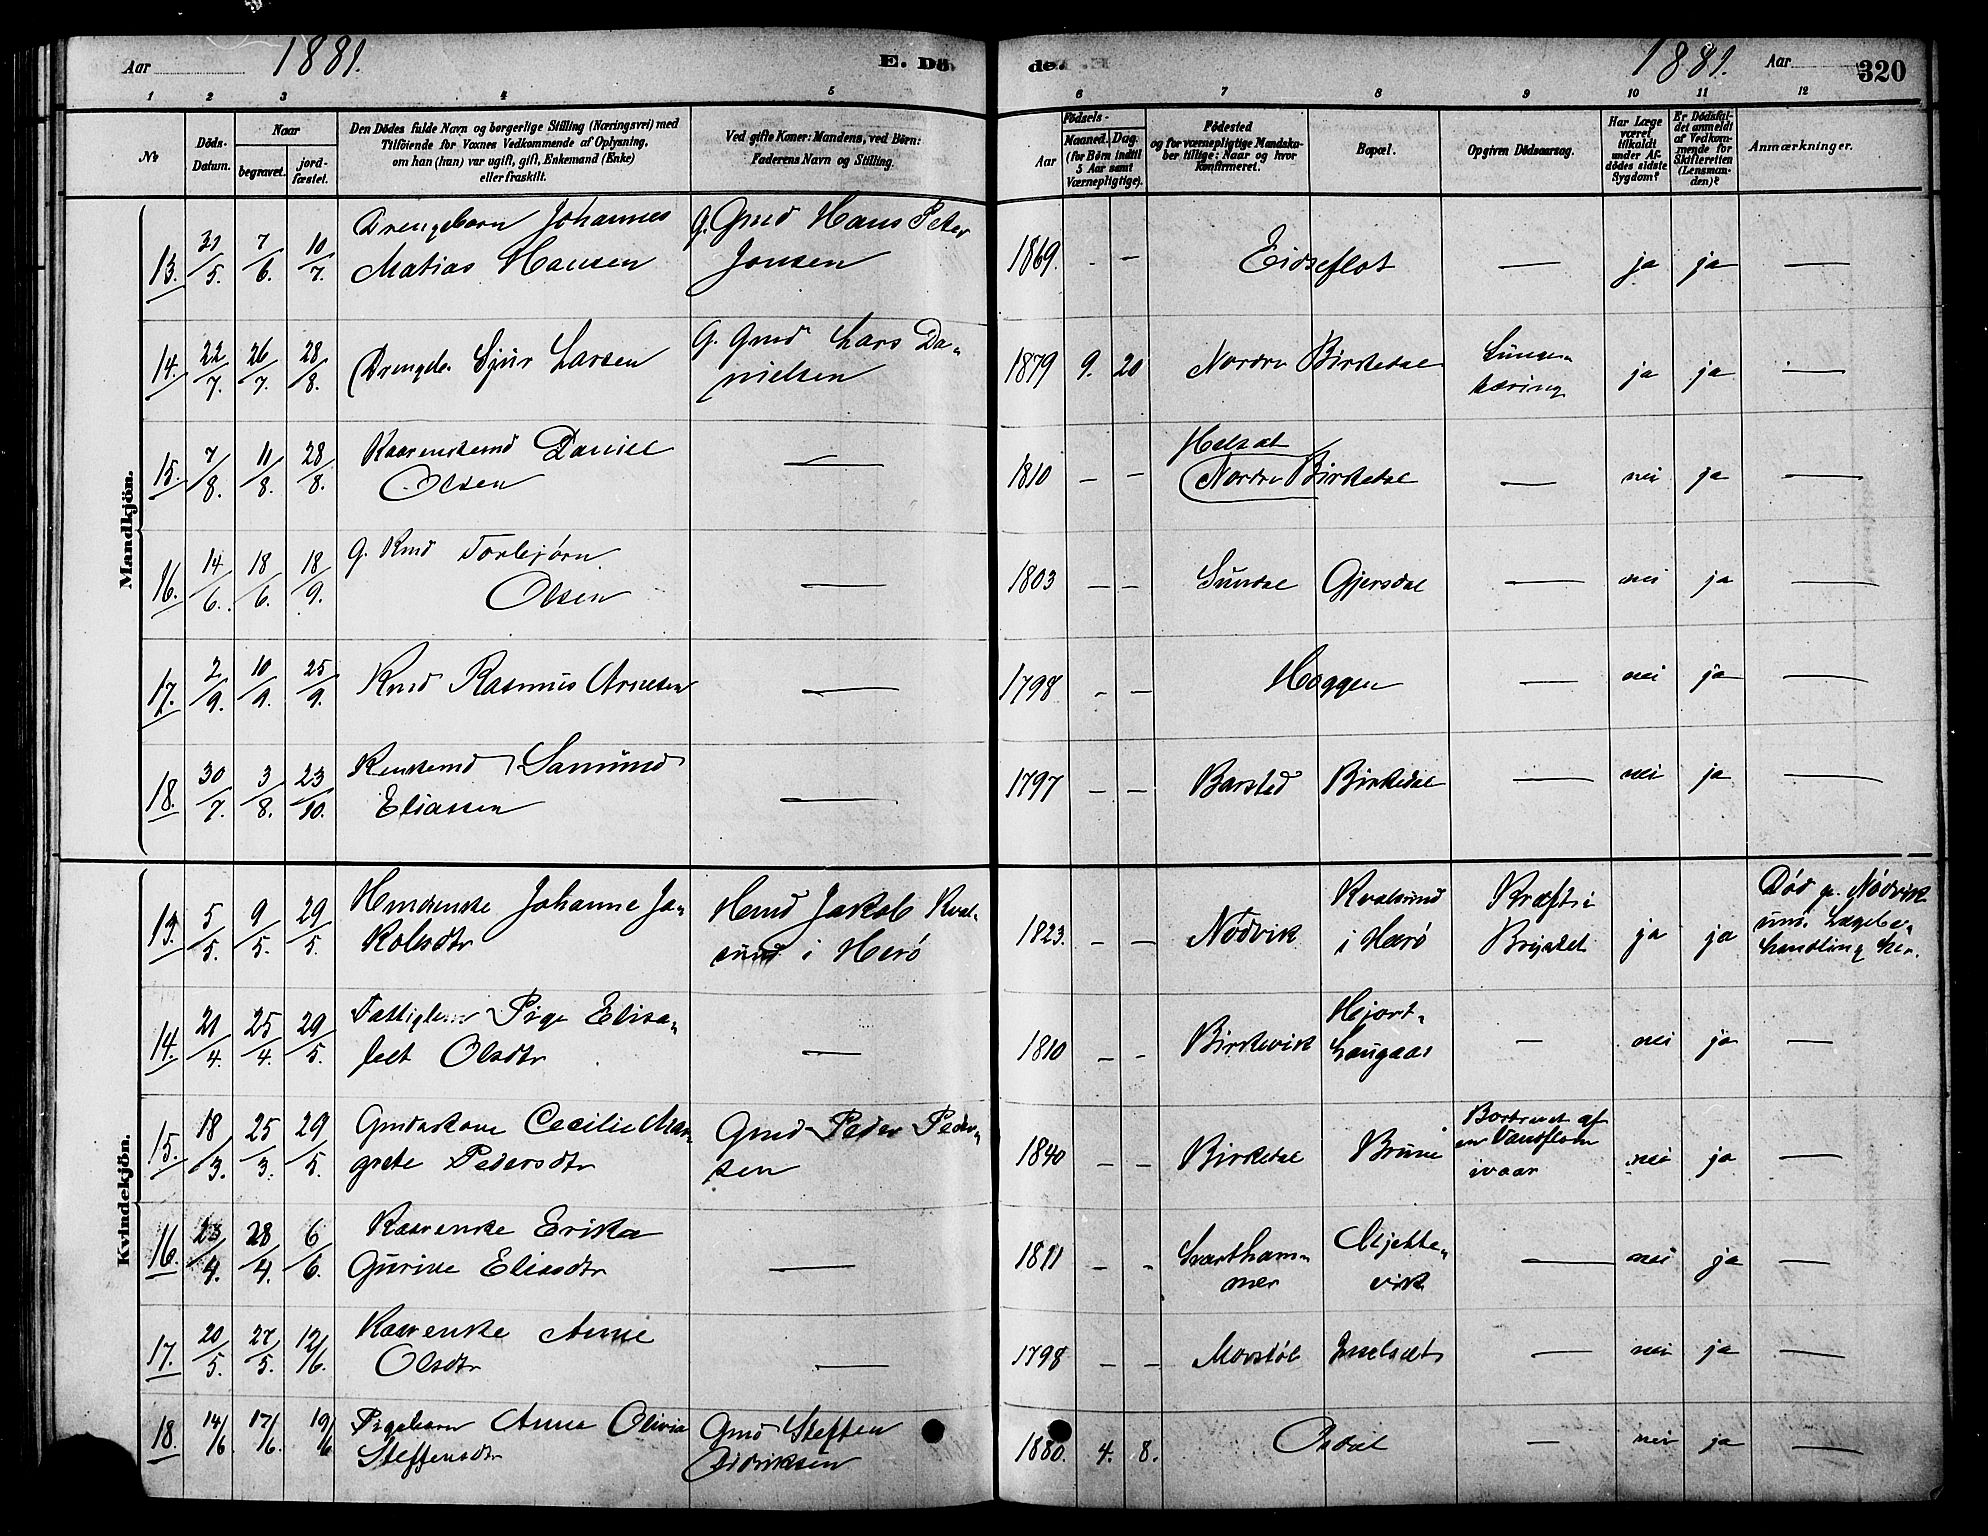 Aar 1881. E. Dö- de. 1881. Aar 320
1 2 3 4 5 6 7 8 9 10 11 12
No
Döds-Datum.
Naar
begravet.
jord-fæstet.
Den Dödes fulde Navn og borgerlige Stilling (Næringsvei) med
Tilföiende for Voxnes Vedkommende af Oplysning,
om han (hun) var ugift, gift, Enkemand (Enke)
eller fraskilt.
Ved gifte Koner: Mandens, ved Börn:
Faderens Navn og Stilling.
Födsels-
Aar
Maaned. Dag.
(for Börn indtil
5 Aar samt
Værnepligtige).
Födested
og for værnepligtige Mandska-
ber tillige: Naar og hvor
konfirmeret.
Bopæl.
Opgiven Dödsaarsag.
Har Læge
været
tilkaldt
under Af-
dödes sidste
Sygdom?
Er Dödsfal-
det anmeldt
af Vedkom-
mende for
Skifteretten
(Lensman-
den)?
Anmærkninger.
Mandkjön.
13. 31/5. 7/6. 10/7. Drengebarn Johannes G. Gmd Hans Peter 1869. - - Eidseflot — ja ja —
Matias Hansen Jonsen
14. 22/7. 26/7. 28/8. Drengb. Sjur Larsen G. Gmd Lars Da- 1879 9. 20 Nordre Birkedal ja ja —
nielsen
15. 7/8. 11/8. 28/8. Daniel — 1810 - - — nei ja —
Olsen Nordre Birkedal
16. 14/6. 18/6. 18/9. G. Kmd Torbjørn — 1803 - - Sundal Gjersdal — nei ja —
Olsen
17. 2/9. 10/9. 25/9. Kmd Rasmus Arnesen — 1798 - - Hoggen — nei ja —
18. 30/7. 3/8. 23/10. Samund — 1797 - - Barsted Birkedal — nei ja —
Eliassen
Kvindekjön.
13. 5/5. 9/5. 29/5. Johanne Ja- Jakob Kval- 1823. - - Nødvik Kvalsund Kræft i ja ja Død p. Nødvik
kobsdtr sund i Herø i Herø Brystet und. Lægebe-
handling her.
14. 21/4. 25/4. 29/5. Pige Elisa- — 1810 - - Birkevik Hjort- — nei ja —
bet Olsdtr haugaas
15. 18/3. 25/3. 29/5. Gmdskone Cecilie Mar- Gmd Peder Peder- 1840 - - Birkedal Brune Bortrevet af nei ja —
grete Pedersdtr sen en Vandflom
ivaar
16. 23/4. 28/4. 6/6. Kaarenke Erika — 1811 - - Svartham- — nei ja —
Gurine Eliasdtr mer vik
17. 20/5. 27/5. 12/6. Kaarenke Anne — 1798 - - — nei ja —
Olsdtr
18. 14/6 17/6. 19/6 Pigebarn Anne Olivia Gmd Steffen 1880. 4. 8. Osdal — nei ja —
Steffensdtr Didriksen